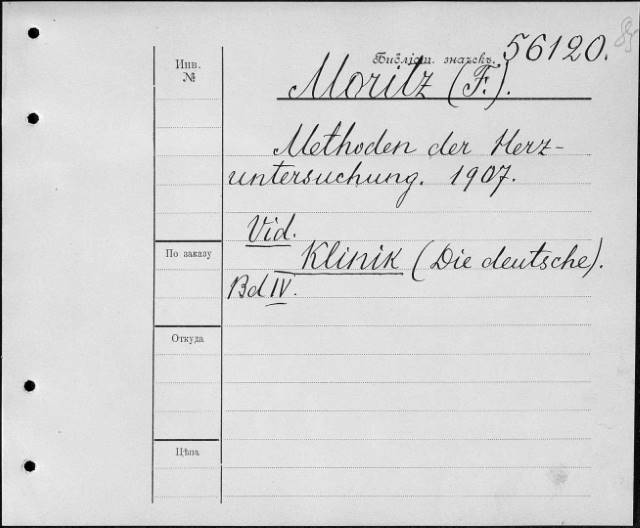 Библіот. значекъ. 56120.
Инв.
№
Moritz (F.).
Methoden der Herz-
untersuchung. 1907.
Vid.
По заказу
Klinik (Die deutsche).
Bd IV.
Откуда
Цѣна